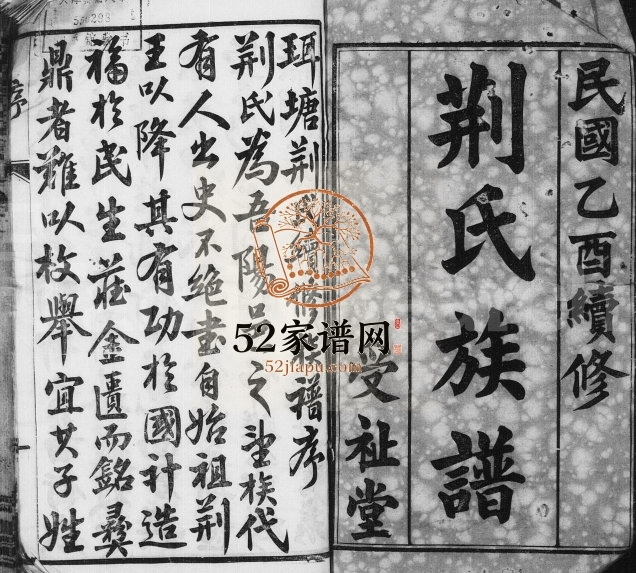 民國乙酉續修
荆氏族譜
受祉堂
珥塘荆氏增修族譜序
荆氏為吾陽邑之望族代
有人出史不絶書自始祖荆
王以降其有功於國計造
福於民生莊金匱而銘彝
鼎者難以枚舉宜其子姓
序
52家谱网
52jiapu.com
298